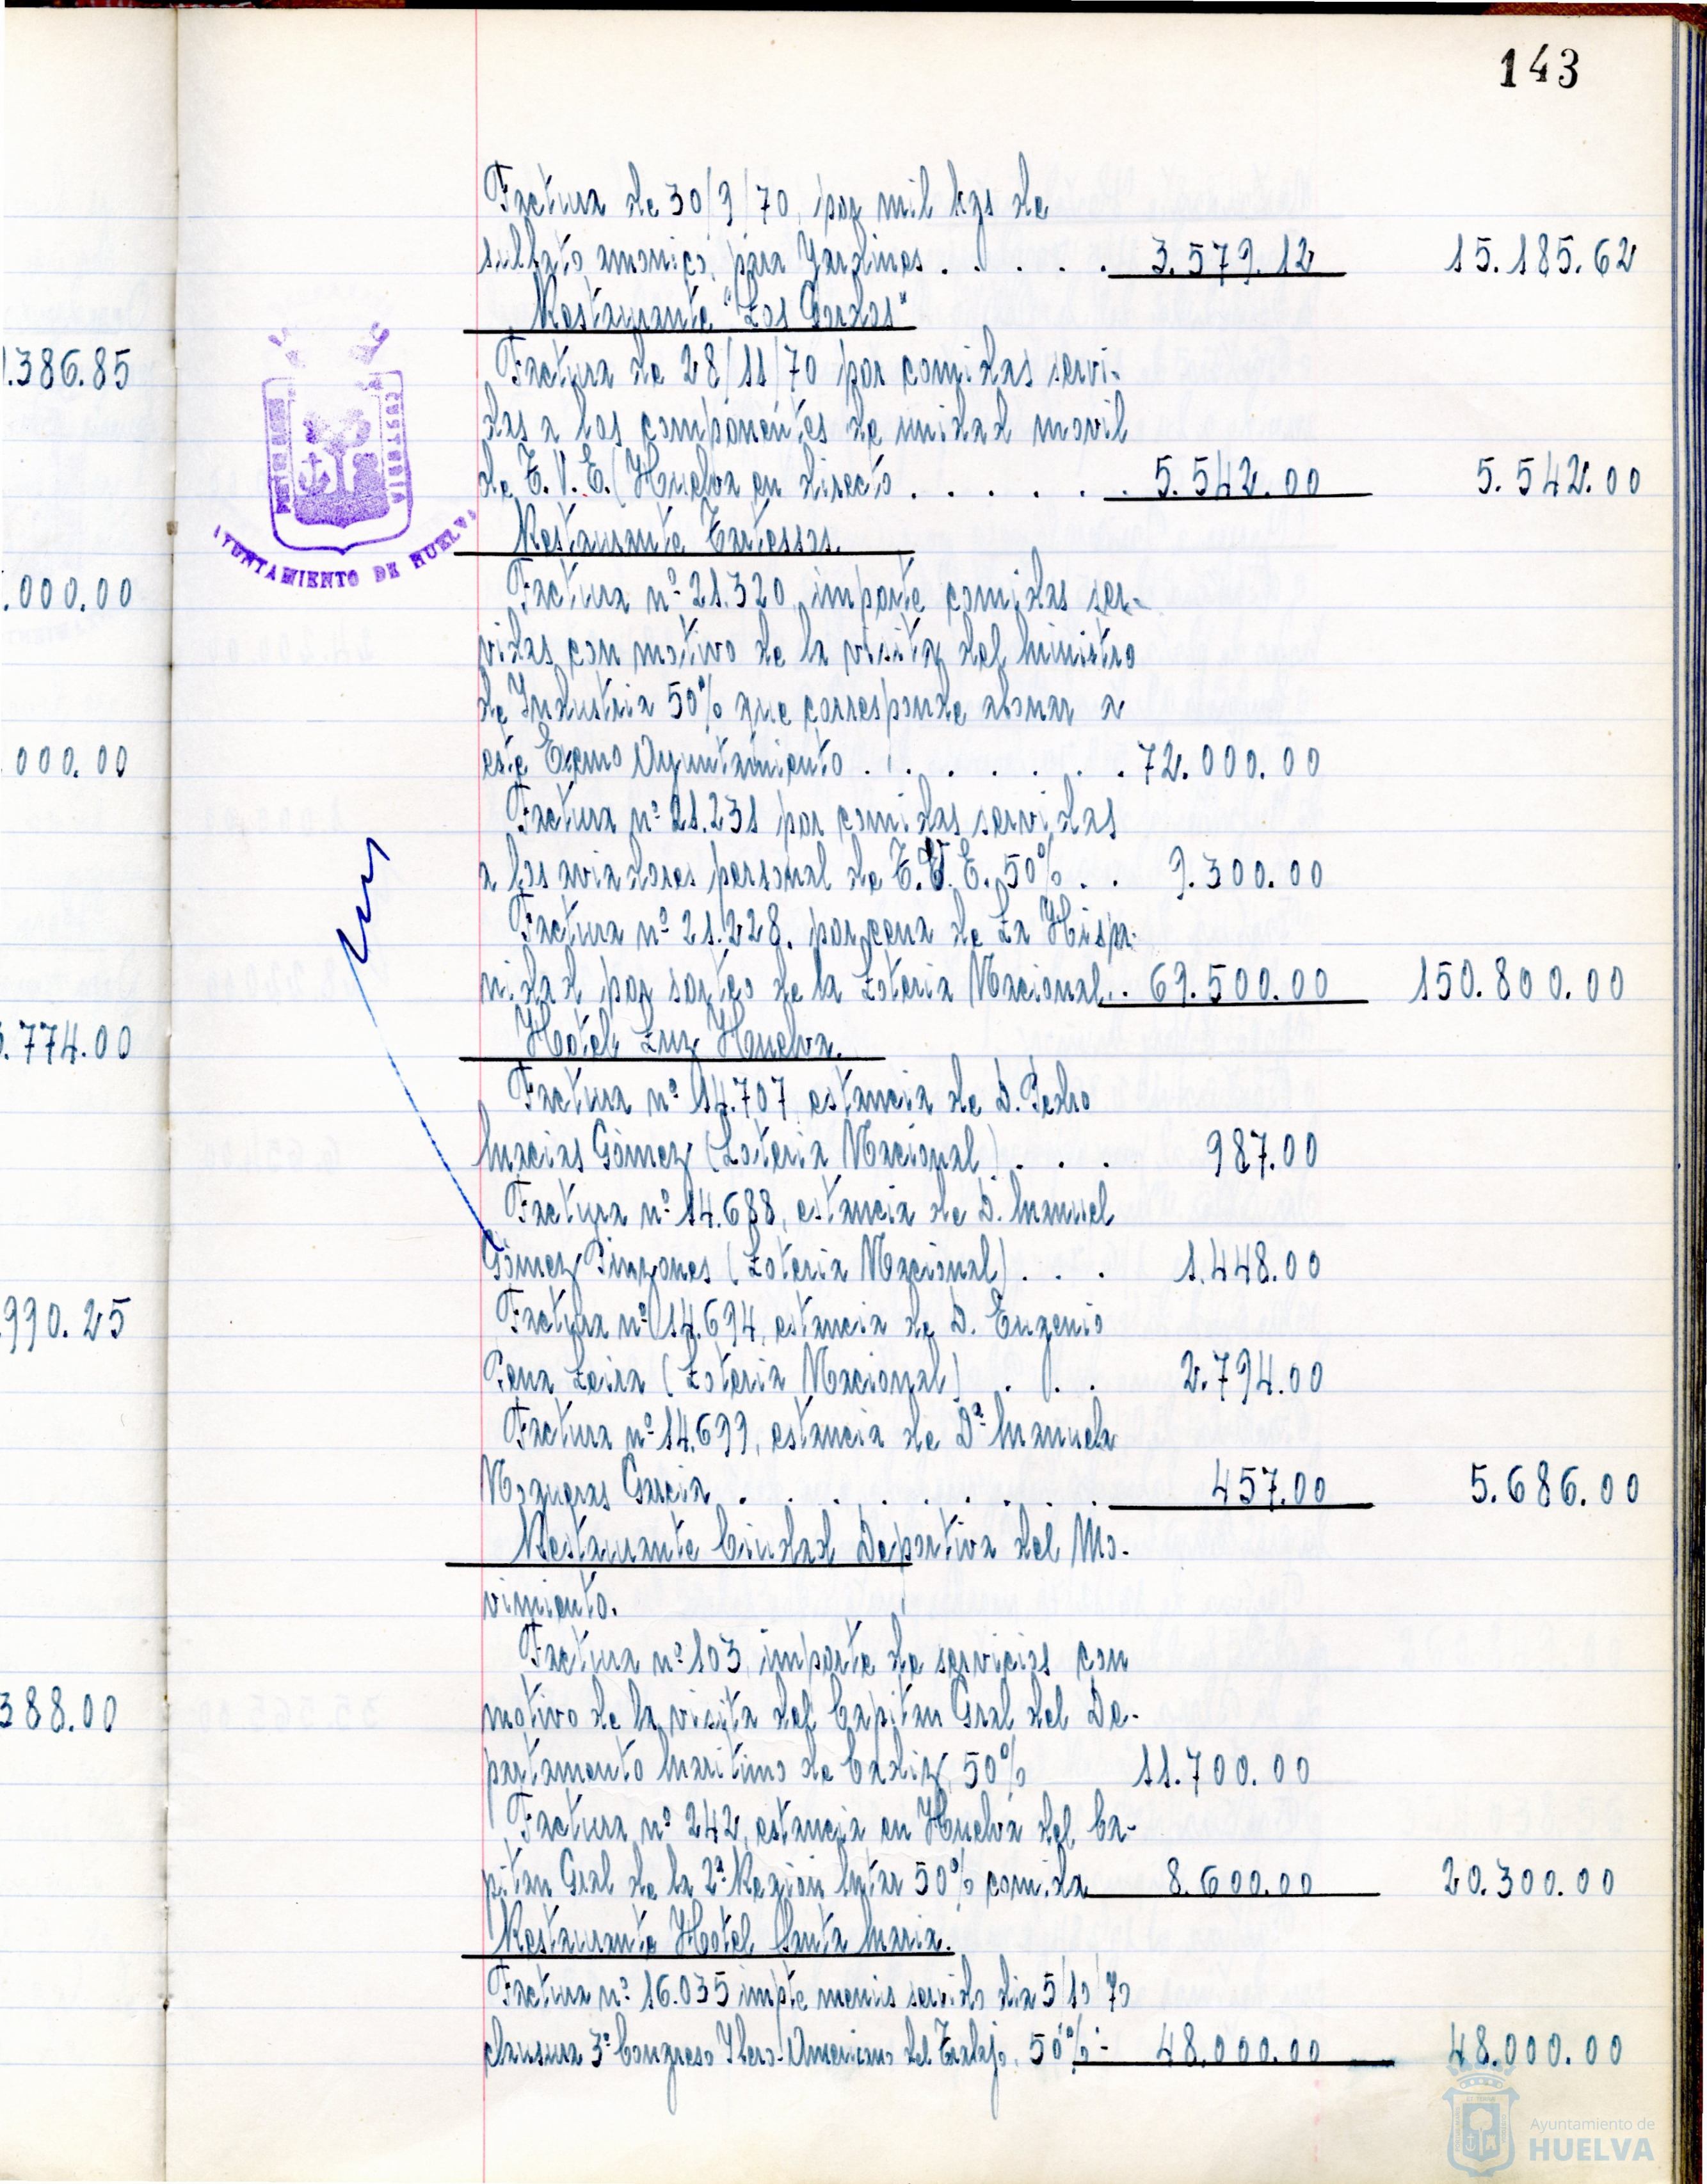 143
Factura de 30/9/70, por mil kgs de
sulfato amonico, para Jardines . . . . . 3.579.12 15.185.62
Restaurante "Los Gordos"
1.386.85
Factura de 28/11/70 por comidas servi-
das a los componentes de unidad movil
de T.V.E. (Huelva en directo . . . . . . 5.542.00 5.542.00
Restaurante Tartessos.
AYUNTAMIENTO DE HUELVA
.000.00
Factura nº 21.320, importe comidas ser-
vidas con motivo de la visita del Ministro
de Industria 50% que corresponde abonar a
.000.00
este Excmo Ayuntamiento . . . . . . . 72.000.00
Factura nº 21.231 por comidas servidas
a los aviadores personal de T.V.E. 50% . . 9.300.00
Factura nº 21.228, por cena de La Hispa-
nidad por sorteo de la Loteria Nacional . . 69.500.00 150.800.00
.774.00
Hotel Luz Huelva.
Factura nº 14.707 estancia de D. Pedro
Macias Gómez (Loteria Nacional) . . . 987.00
Factura nº 14.688, estancia de D. Manuel
Gómez Pinzones (Loteria Nacional) . . . 1.448.00
990.25
Factura nº 14.694, estancia de D. Eugenio
Pena Leira (Loteria Nacional) . . . 2.794.00
Factura nº 14.699, estancia de Dª Manuela
Nogueras Garcia . . . . . . . . . 457.00 5.686.00
Restaurante Ciudad Deportiva del Mo-
vimiento.
Factura nº 103, importe de servicios con
388.00
motivo de la visita del Capitan Gral del De-
partamento Maritimo de Cadiz, 50% 11.700.00
Factura nº 242, estancia en Huelva del Ca-
pitan Gral de la 2ª Region Mtar 50% comida 8.600.00 20.300.00
Restaurante Hotel Santa Maria.
Factura nº 16.035 impte menus servido dia 5/10/70
clausura 3º Congreso Ibero-Americano del Trabajo, 50% - 48.000.00 48.000.00
Ayuntamiento de
HUELVA